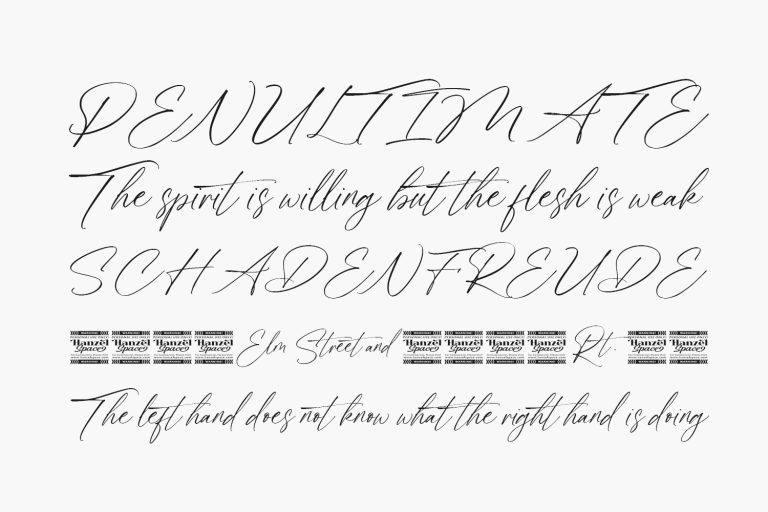 PENULTIMATE
The spirit is willing but the flesh is weak
SCHADENFREUDE
Hanzel Space Hanzel Space Hanzel Space Hanzel Space Elm Street and Hanzel Space Hanzel Space Hanzel Space Hanzel Space Rt. Hanzel Space Hanzel Space
The left hand does not know what the right hand is doing